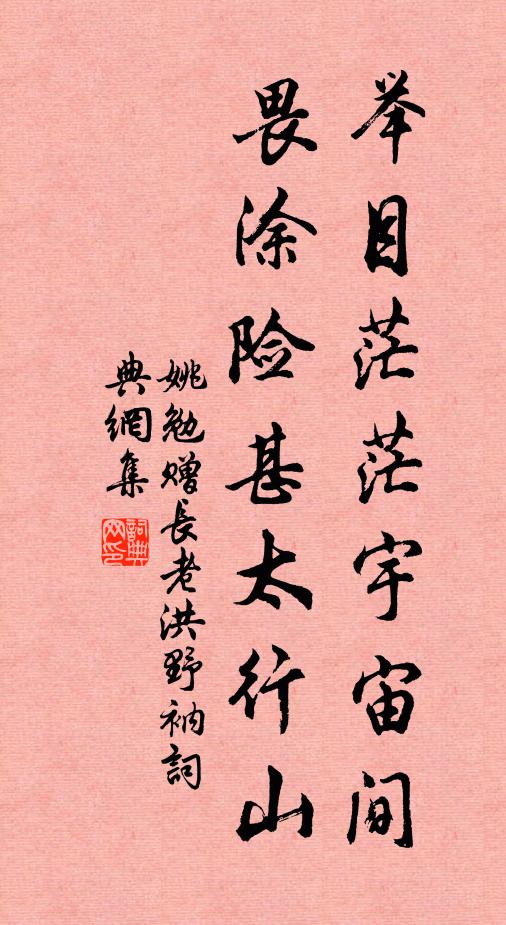 举目茫茫宇宙间
畏涂险甚太行山
姚勉赠長老洪野衲詞
典網集
詞典网印